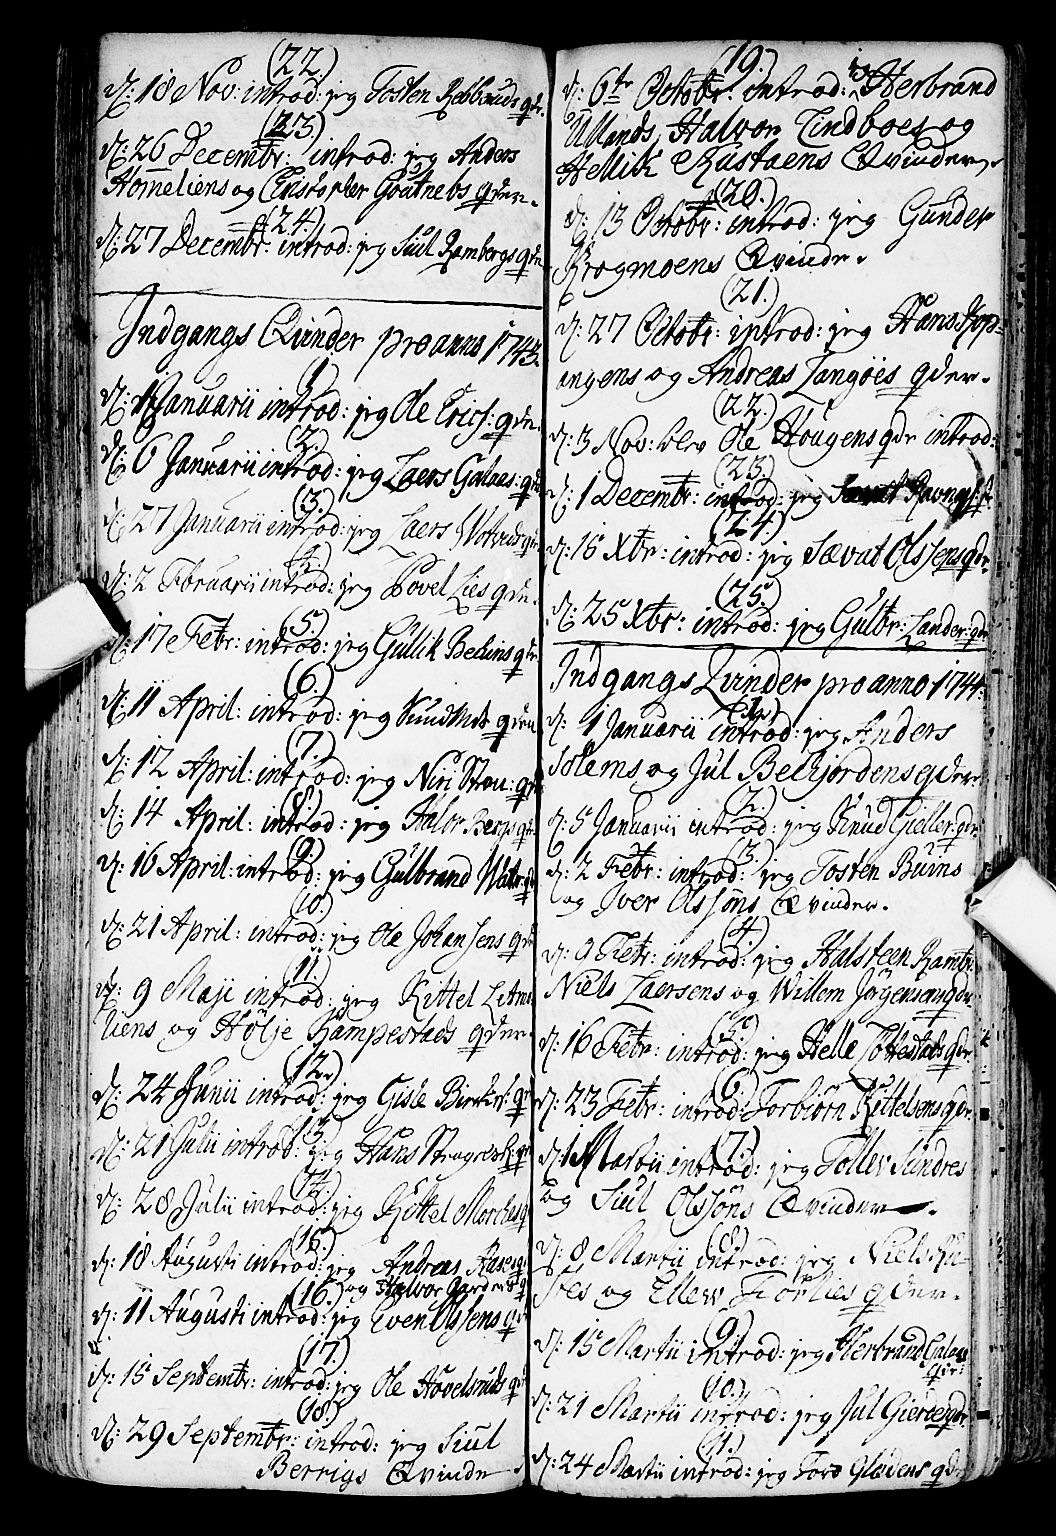 (22.)
d: 18 Nov: introd: jeg Tosten Rebbruds qde.
(23.)
d: 26 Decembr: introd: jeg Anders
Homeliens og Christopher Goutnebs qder.
(24.)
d: 27 Decembr: introd: jeg Siul Rambergs qde
Indgangs Qvinder pro anno 1743.
1.
d: 1 Januarii introd: jeg Ole Erics: qde.
2.
d: 6 Januarii introd: jeg Laers Galaas: qde
(3.)
d: 27 Januarii introd: jeg Laers
(4.)
d: 2 Februarii introd: jeg Povel Lies qde.
(5.)
d: 17 Febr: introd: jeg Gullik Bechins qde
(6.)
d: 11 April: introd: jeg qde
(7.)
d: 12 April: introd: jeg Niri
(8.)
d: 14 April: introd: jeg Halvor Bergs qde
(9.)
d: 16 April: introd: jeg Gulbrand
(10.)
d: 21 April: introd: jeg Ole Johansens qde
(11.)
d: 9 Maji introd: jeg Kittel
liens og Hölje Kampestads qder.
(12.)
d: 24 Junii introd: jeg Gisle
13.
d: 21 Julii introd: jeg Hans
(14.)
d: 28 Julii introd: jeg Kittel
(15.)
d: 18 Augusti introd: jeg Andreas Aases qd
og Halvor
(16.)
d: 11 Augusti introd: jeg Even Olssens qd
(17.)
d: 15 Septembr: introd: jeg Ole Hovelsruds qd
(18.)
d: 29 Septembr: introd: jeg Siul
Berrigs Qvinde.
(19.)
d: 6te Octobr: introd: jeg Herbrand
Ullands, Halvor Lindboes og
Hellik Rustaens Qvinder.
(20.)
d: 13 Octobr: introd: jeg Gunder
Krogmoens Qvinde.
(21.)
d: 27 Octobr: introd: jeg Hans Kop=
angens og Andreas Langöes qder.
(22.)
d: 3 Nov: blev Ole Hougens qde introd:
(23.)
d: 1 Decembr: introd: jeg
(24.)
d: 16 Xbr: introd: jeg Sævat Olssens qde.
(25.)
d: 25 Xbr: introd: jeg Gulbr: Lander: qde
Indgangs Qvinder pro anno 1744.
(1.)
d: 1 Januarii introd: jeg Anders
Solems og Jul Bechjordens qder.
(2.)
d: 5 Januarii introd: jeg Knud Gieller: qde.
(3.)
d: 2 Febr: introd: jeg Tosten Buins
og Iver Olssöns Qvinder.
(4.)
d: 9 Febr: introd: jeg Halsteen Rambr:
Niels Laersens og Willem Jörgensens qder.
(5.)
d: 16 Febr: introd: jeg Helle Tostestads qde.
6.
d: 23 Febr: introd: Torbiörn Kittelsens qde.
(7.)
d: 1 Martii introd: jeg Tollev Sundres
og Siul Olssöns Qvinder.
(8.)
d: 8 Martii introd: jeg Niels Ru=
stes og Ellev Tortlies qder.
(9.)
d: 15 Martii introd: jeg Herbrand Galaas
qde:
(10.)
d: 21 Martii introd: jeg Jul qde.
(11.)
d: 24 Martii introd: jeg Tord Glædens qde.